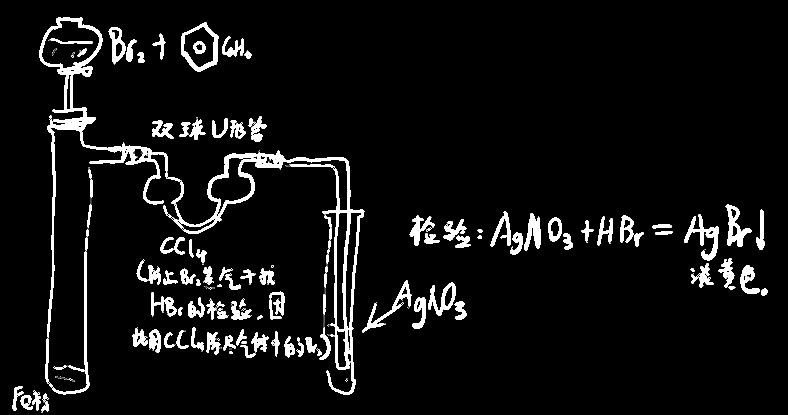 Br₂ + C₆H₆
双球U形管
CCl₄
(防止Br₂蒸气干扰
HBr的检验,因
此用CCl₄除尽气体中的Br₂)
检验:AgNO₃+HBr=AgBr↓
淡黄色.
AgNO₃
Fe粉